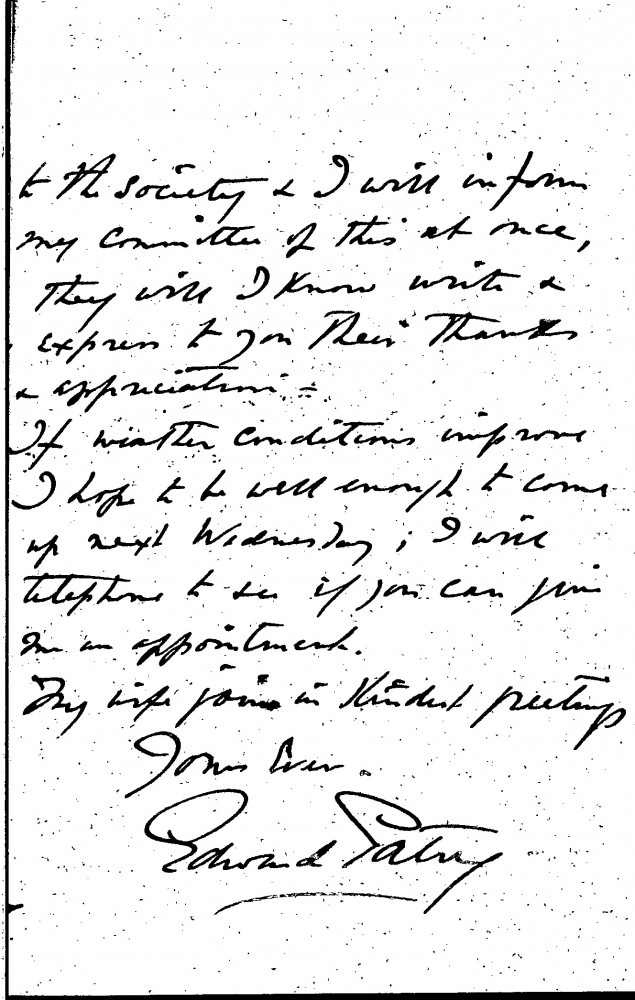 to the Society & I will inform
my Committee of this at once,
They will I know write &
express to you their thanks
& appreciation -
If weather conditions improve
I hope to be well enough to come
up next Wednesday; I will
telephone to see if you can give
me an appointment.
My wife joins in kindest greetings
Yours Ever.
Edward Patry